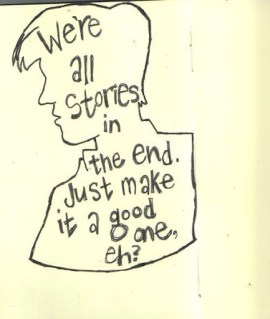 We're
all
Stories,
in
the end.
Just make
it a good
one,
eh?